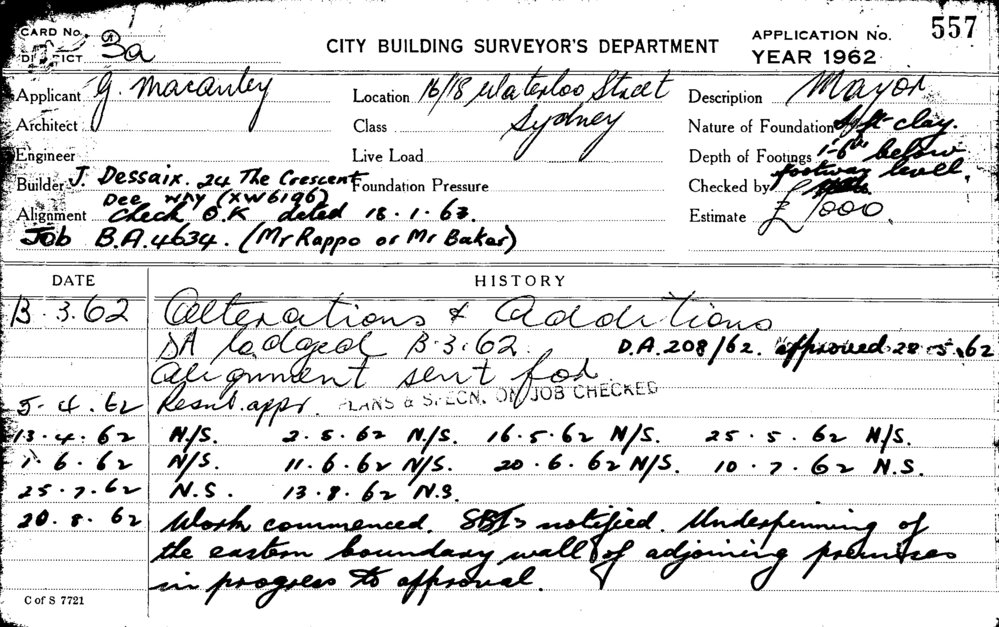 CARD No.
DISTRICT 3a
CITY BUILDING SURVEYOR'S DEPARTMENT
APPLICATION No. 557
YEAR 1962
Applicant G. Macauley
Location 16/18 Waterloo Street
Sydney
Description Mayor
Architect
Class
Nature of Foundation Soft clay.
Engineer
Live Load
Depth of Footings 1'-6" below
footway level.
Builder J. Dessaix. 24 The Crescent
Dee Why (XW6196)
Foundation Pressure
Checked by
Alignment Check O.K dated 18.1.63.
Estimate £1000.
Job B.A.4634. (Mr Rappo or Mr Baker)
DATE HISTORY
13.3.62 Alterations & Additions
DA lodged 13.3.62. D.A. 208/62. approved 28.5.62
Alignment sent for
5.4.62 Resub. appr. PLANS & SPECN. ON JOB CHECKED
13.4.62 N/S. 2.5.62 N/S. 16.5.62 N/S. 25.5.62 N/S.
1.6.62 N/S. 11.6.62 N/S. 20.6.62 N/S. 10.7.62 N.S.
25.7.62 N.S. 13.8.62 N.S.
20.8.62 Work commenced. notified. Underpinning of
the eastern boundary wall of adjoining premises
in progress to approval.
C of S 7721